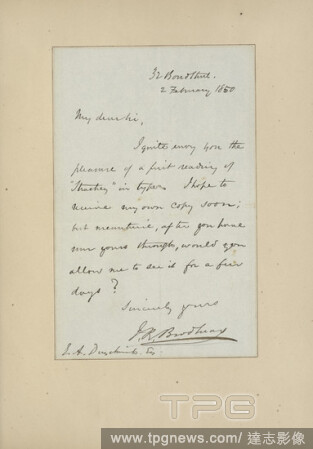 32 Bond Street.
2 February 1880
My dear Sir,
I quite envy you the
pleasure of a first reading of
"Stuckey" in types. I hope to
receive my own copy soon;
but meantime, after you have
run yours through, would you
allow me to see it for a few
days?
Sincerely yours
J. R. Brodhead
TPG
www.tpgnews.com / 達志影像